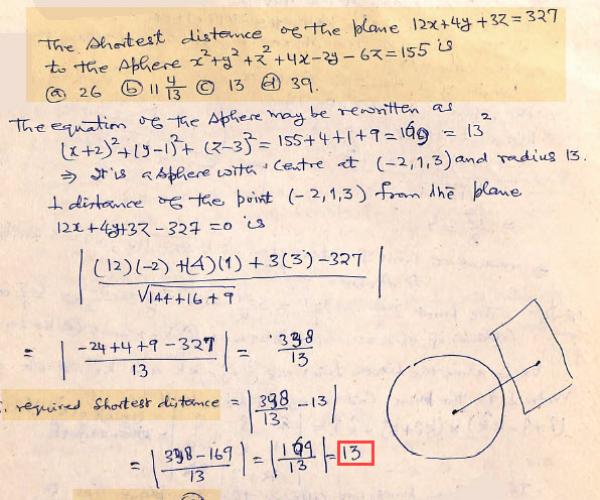 The shortest distance of the plane 12x+4y+3z=327
to the sphere x²+y²+z²+4x-2y-6z=155 is
(a) 26 (b) 11 4/13 (c) 13 (d) 39.
The equation of the sphere may be rewritten as
(x+2)²+(y-1)²+(z-3)²=155+4+1+9=169 = 13²
⇒ It is a sphere with centre at (-2,1,3) and radius 13.
⊥ distance of the point (-2,1,3) from the plane
12x+4y+3z-327=0 is
| (12)(-2)+(4)(1)+3(3)-327 / √144+16+9 |
= | -24+4+9-327 / 13 | = 338/13
∴ required shortest distance = | 338/13 - 13 |
= | 338-169 / 13 | = | 169/13 | = 13